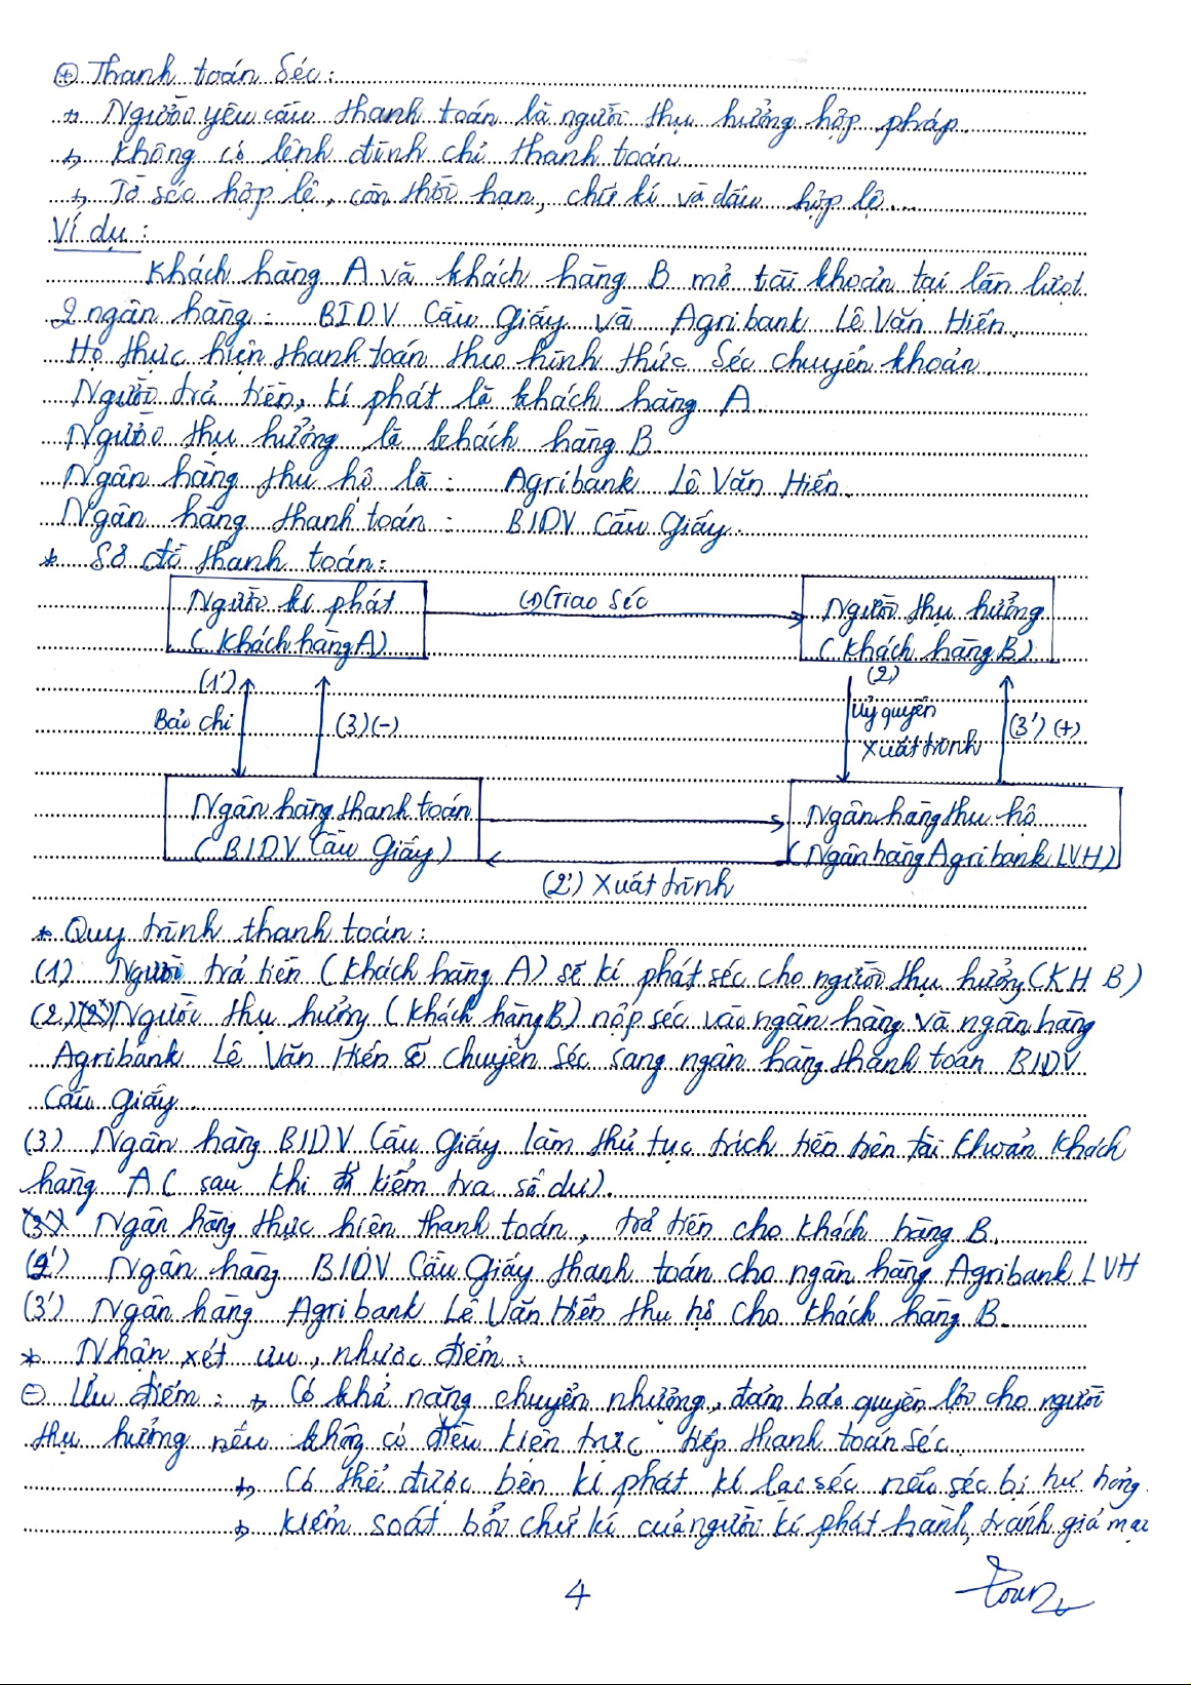 ⊕ Thanh toán Séc:
+ Người yêu cầu thanh toán là người thụ hưởng hợp pháp.
+ Không có lệnh đình chỉ thanh toán
+ Tờ séc hợp lệ, còn thời hạn, chữ kí và dấu hợp lệ...
Ví dụ:
Khách hàng A và khách hàng B mở tài khoản tại lần lượt
2 ngân hàng: BIDV Cầu Giấy và Agribank Lê Văn Hiến.
Họ thực hiện thanh toán theo hình thức Séc chuyển khoản.
Người trả tiền, kí phát là khách hàng A.
Người thụ hưởng là khách hàng B.
Ngân hàng thu hộ là: Agribank Lê Văn Hiến.
Ngân hàng thanh toán: BIDV Cầu Giấy.
* Sơ đồ thanh toán:
Người kí phát
(Khách hàng A)
(1) Giao Séc
Người thụ hưởng
(Khách hàng B)
(1')
Bảo chi
(3) (-)
(2)
Uỷ quyền
xuất trình
(3') (+)
Ngân hàng thanh toán
(BIDV Cầu Giấy)
Ngân hàng thu hộ
(Ngân hàng Agribank LVH)
(2') Xuất trình
* Quy trình thanh toán:
(1) Người trả tiền (Khách hàng A) sẽ kí phát séc cho người thụ hưởng (KH B)
(2) (2') Người thụ hưởng (Khách hàng B) nộp séc vào ngân hàng và ngân hàng
Agribank Lê Văn Hiến chuyển Séc sang ngân hàng thanh toán BIDV
Cầu Giấy.
(3) Ngân hàng BIDV Cầu Giấy làm thủ tục trích tiền trên tài khoản Khách
hàng A (sau khi kiểm tra số dư).
(3') Ngân hàng thực hiện thanh toán, trả tiền cho khách hàng B.
(2') Ngân hàng BIDV Cầu Giấy thanh toán cho ngân hàng Agribank LVH
(3') Ngân hàng Agribank Lê Văn Hiến thu hộ cho khách hàng B.
* Nhận xét ưu, nhược điểm:
⊖ Ưu điểm: + Có khả năng chuyển nhượng, đảm bảo quyền lợi cho người
thụ hưởng nếu không có điều kiện trực tiếp thanh toán séc.
+ Có thể được bên kí phát kí lại séc nếu séc bị hư hỏng.
+ Kiểm soát bởi chữ kí của người kí phát hành, tránh giả mạo
4